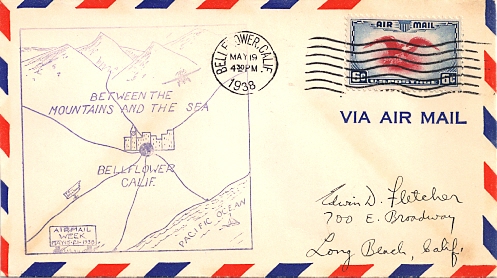 BETWEEN THE
MOUNTAINS AND THE SEA
BELLFLOWER
CALIF.
PACIFIC OCEAN
AIRMAIL
WEEK
MAY 15-21-1938
BELLFLOWER, CALIF.
MAY 19
4 PM
1938
AIR MAIL
6¢ 6¢
U.S. POSTAGE
VIA AIR MAIL
Edwin D. Fletcher
700 E. Broadway
Long Beach, Calif.